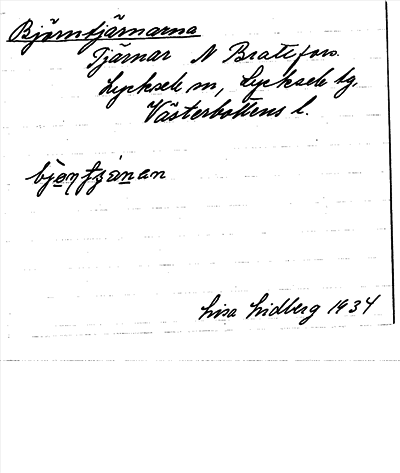 Björntjärnarna
Tjärnar N Bratefors.
Lycksele sn, Lycksele tg.
Västerbottens l.
Lisa Lidberg 1934